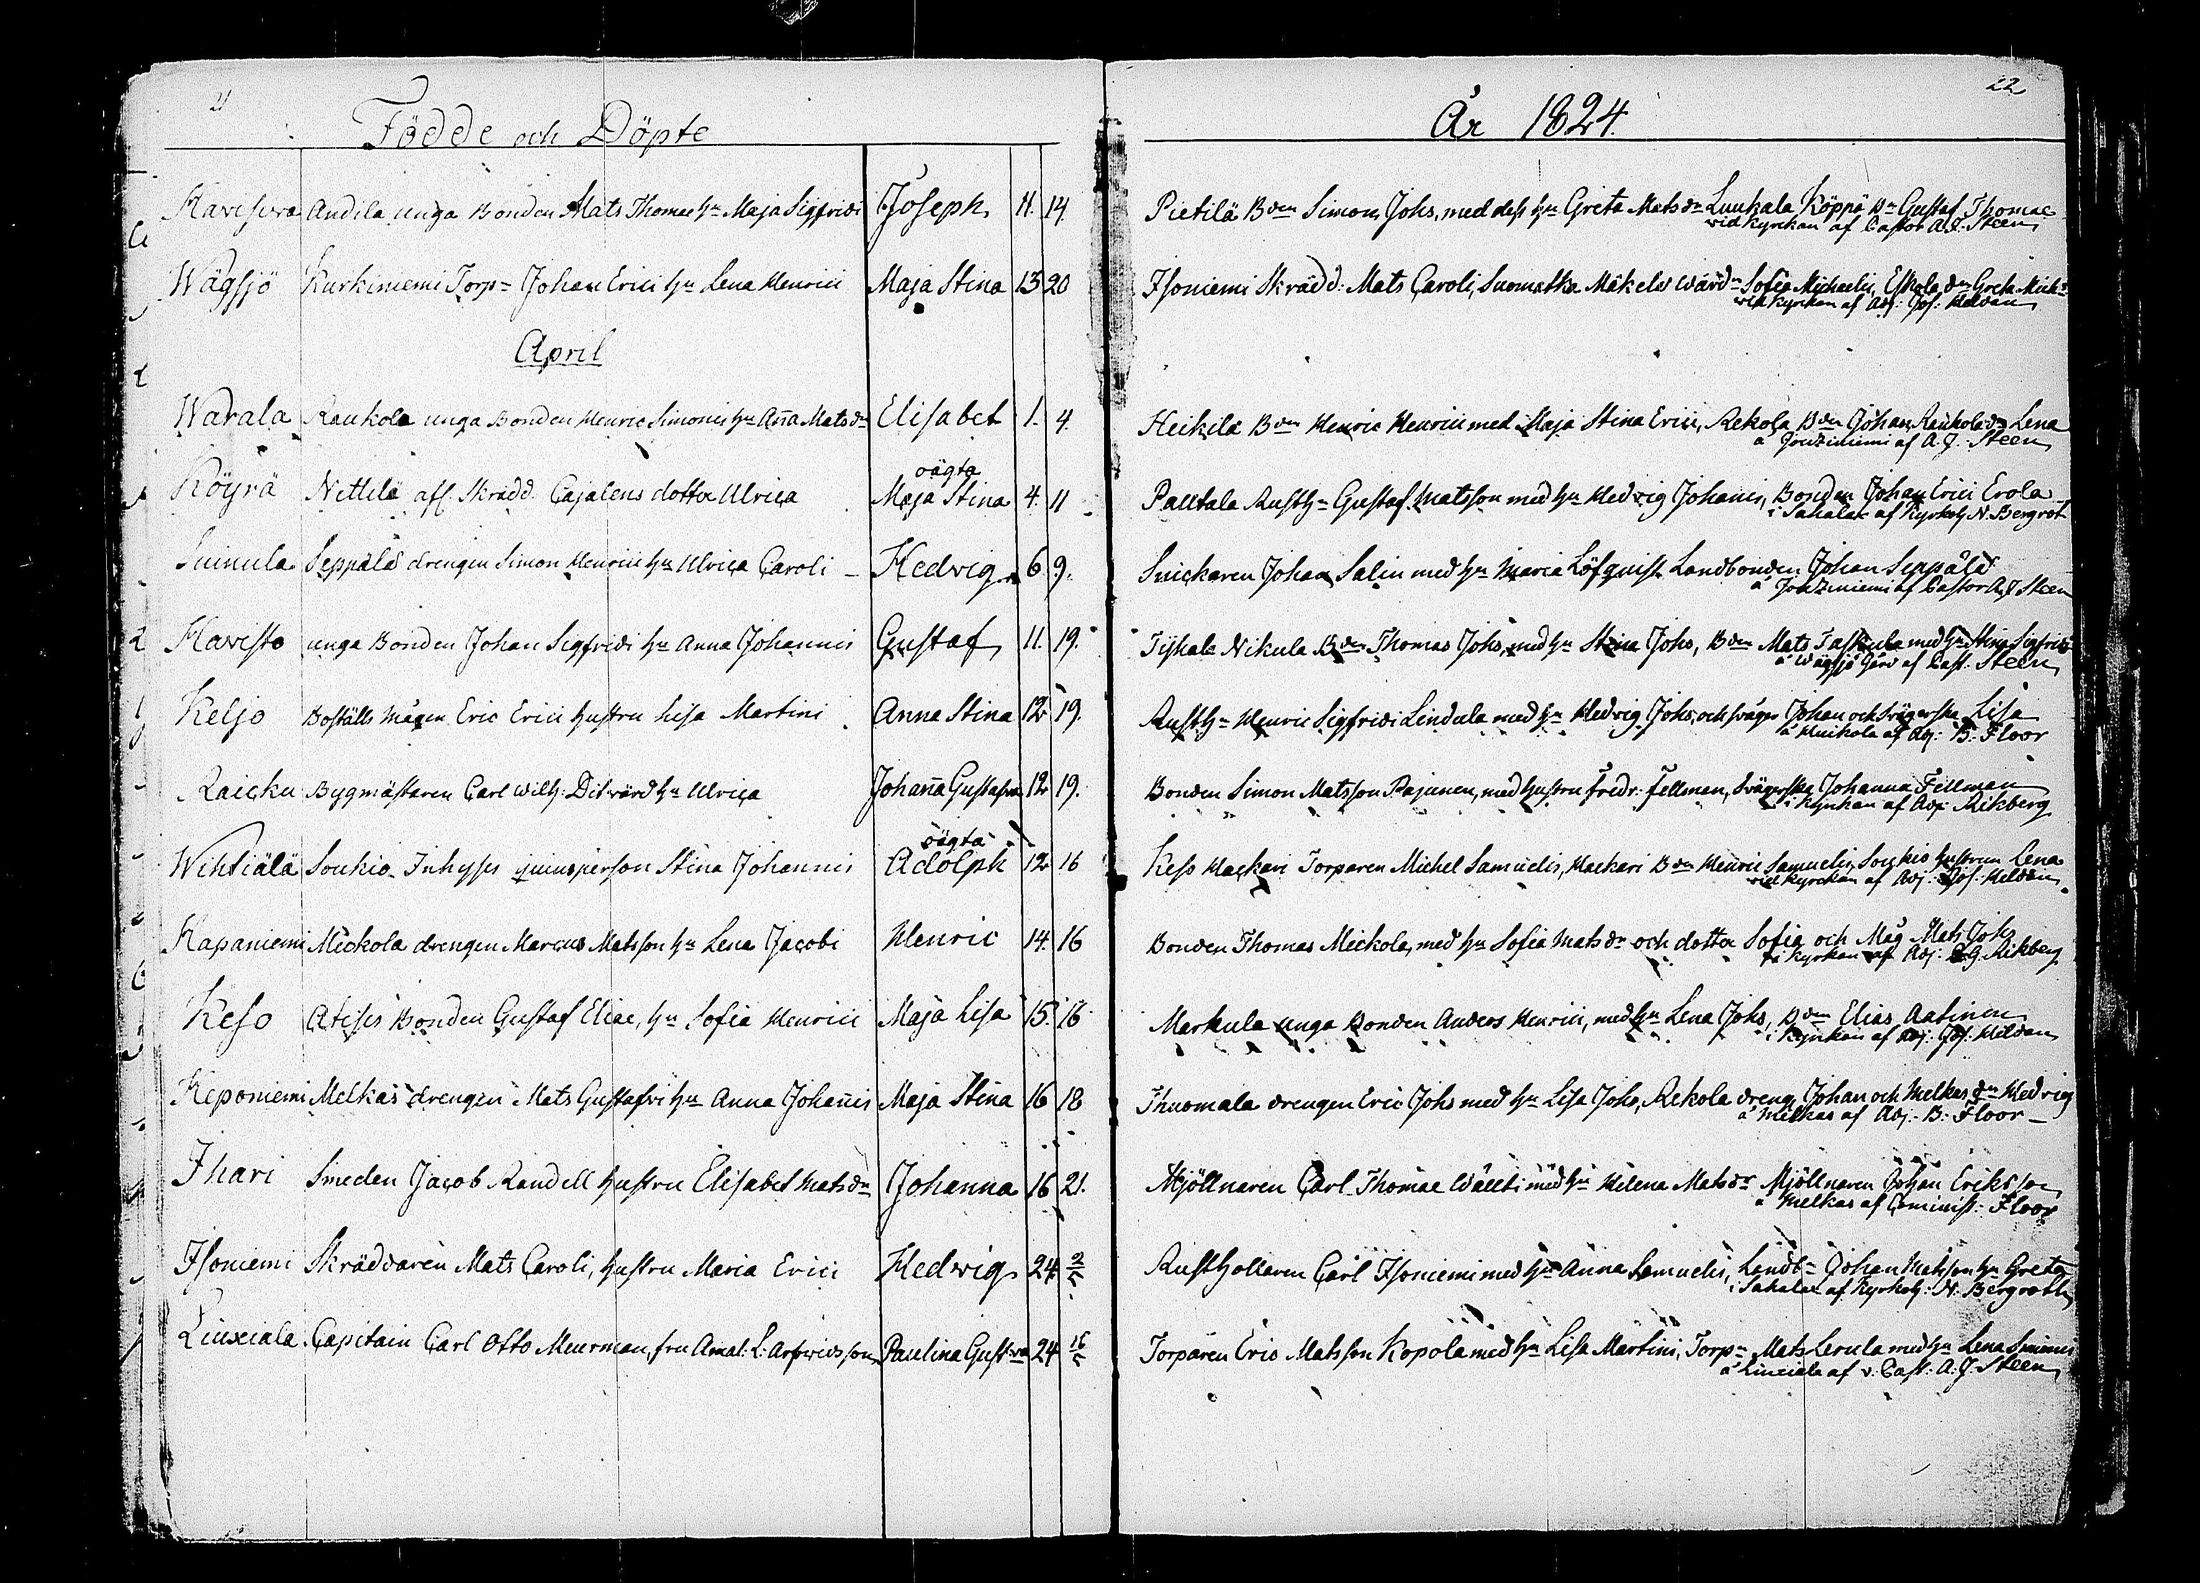 21
Födde och Döpte
År 1824.
22
Havisivra Andila unga Bonden Mats Thomae hu Maja Sigfridi Joseph 11. 14 Pietilä Bden Simon Johs, med dess hu Greta Matsdr Luukala Köppä Bn Gustaf Thomae
vid kyrckan af Pastor A. J. Steen
Wägsjö Kurkiniemi Torp= Johan Erici hu Lena Henrici Maja Stina 13 20 Isoniemi Skrädd: Mats Caroli, Suomatka Mäkelä Eskola Greta
vid kyrckan af Adj: Jos: Heldan
April
Warala Raukola unga Bonden Henric Simonis hu Anna Matsdr Elisabet 1. 4. Heikilä Bden Henric Henrici med Maja Stina Erici, Rekola Bden Johan, Raukola dr Lena
à Jouziniemi af A. J. Steen
oägta
Köyrä Nettilä afl. Skrädd. Cajalens dotter Ulrica Maja Stina 4. 11 Pautala Rusth= Gustaf Matsson med hu Hedvig Johanis, Bonden Johan Erici Erola
i Sahalax af Kyrkoh N. Bergrot
Suinula Seppälä drengen Simon Henrici hu Ulrica Caroli Hedvig 6 9. Snickaren Johan Salin med hu Maria Löfquist Landbonden Johan Seppälä
à Jouziniemi af Pastor A J Steen
Havisto unga Bonden Johan Sigfridi hu Anna Johannis Gustaf 11. 19. Tijhala Nikula Bden Thomas Johs, med hu Stina Johs, Bden Mats med hu Stina Sigfridi
à Wägsjö Gård af Past. Steen
Keljo Boställs Mågen Eric Erici hustru Lisa Martini Anna Stina 12 19. Rusth= Henric Sigfridi Lindula med hu Hedvig Johs, och svåger Johan och Svägerska Lisa
à Huikola af Adj: B: Floor
Raicku Bygmästaren Carl Wilh: Ditvärd hu Ulrica Johanna Gustafva 12 19. Bonden Simon Matsson Pajunen, med hustru Fredr. Fellman, Svägerska Johanna Fellman
i kyrkan af Adj: Rikberg
oägta
Wihtiälä Soukio Inhysses quinsperson Stina Johannis Adolph 12 16 Keso Mackari Torparen Michel Samuelis, Mackari Bden Henric Samuelis, Soukio hustrun Lena
vid kyrckan af Adj: Jos: Heldan
Kapaniemi Mickola drengen Marcus Matsson hu Lena Jacobi Henric 14. 16 Bonden Thomas Mickola, med hu Sofia Matsdr och dotter Sofia och Måg Mats Johs
i kyrkan af Adj: G. Rikberg
Keso Atisis Bonden Gustaf Eliae, hu Sofia Henrici Maja Lisa 15. 16 Markula unga Bonden Anders Henrici, med hu Lena Johs, Bden Elias Aatinen
i kyrkan af Adj: Jos. Heldan
Keponiemi Melkas drengen Mats Gustafvi hu Anna Johanis Maja Stina 16 18 Thuomala drengen Eric Johs med hu Lisa Johs, Rekola dreng Johan och Melkas dr Hedvig
à Melkas af Adj: B: Floor
Ihari Smeden Jacob Randell hustru Elisabet Matsdr Johanna 16 21. Mjöllnaren Carl Thomae Wälti med hu Helena Matsdr Mjöllnaren Johan Eriksson
à Melkas af Cominist: Floor
Isoniemi Skräddaren Mats Caroli, hustru Maria Erici Hedvig 24 2/5 Rusthollaren Carl Isoniemi med hu Anna Samuelis, Landb= Johan Matsson hu Greta
i Sahalax af Kyrkoh: N. Bergroth
Liuxiala Capitain Carl Otto Meurman, fru Amal: L: Arfwidsson Paulina Gustva 24 16/5 Torparen Eric Matsson Kopola med hu Lisa Martini, Torp= Mats Lerula med hu Lena Simonis
à Liuxiala af v. Past: A. J. Steen